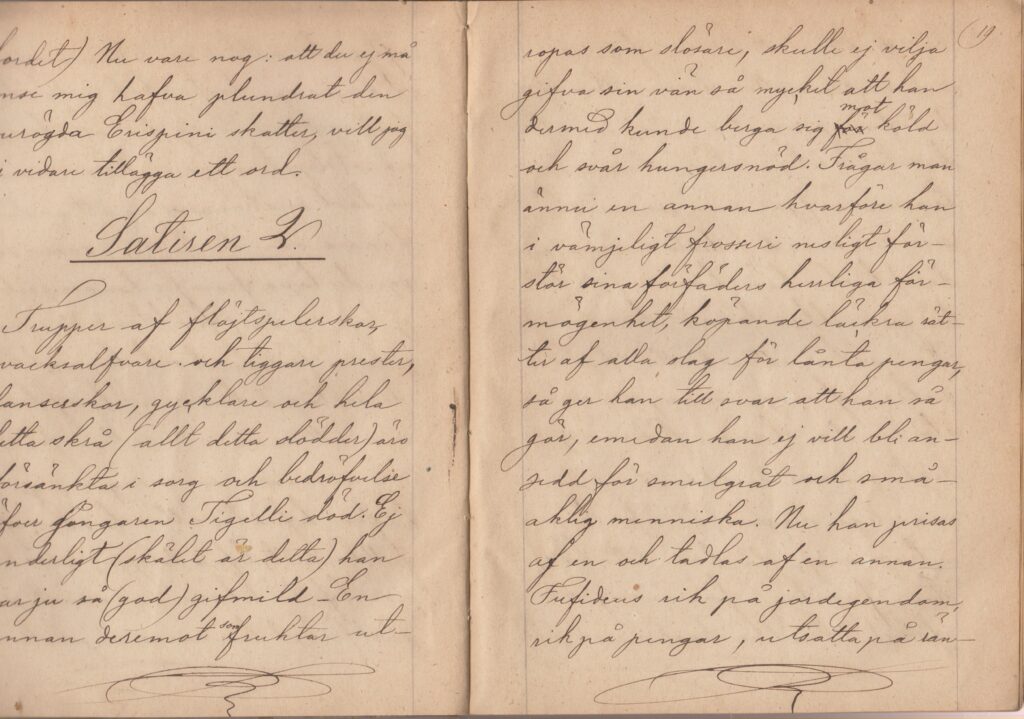 ordet) Nu vare nog: att du ej må
nse mig hafva plundrat den
urögda Crispini skatter, vill jag
i vidare tillägga ett ord.
Satiren 2.
Trupper af flöjtspelerskor,
vacksalfvare och tiggare prester,
danserskor, gycklare och hela
etta skrå (allt detta slödder) äro
försänkta i sorg och bedröfvelse
öfver sångaren Tigelli död. Ej
nderligt (skälet är detta) han
ar ju så (god) gifmild – En
nnan deremot som fruktar ut-
19.
ropas som slösare, skulle ej vilja
gifva sin vän så mycket att han
dermed kunde berga sig för mot köld
och svår hungersnöd. Frågar man
ännu en annan hvarföre han
i vämjeligt frosseri nesligt för-
stör sina förfäders herrliga för-
mögenhet, köpande läckra rät-
ter af alla slag för lånta pengar,
så ger han till svar att han så
gör, emedan han ej vill bli an-
sedd för smulgråt och små-
aklig menniska. Nu han prisas
af en och tadlas af en annan.
Fufideus rik på jordegendom,
rik på pengar, utsatta på rän-